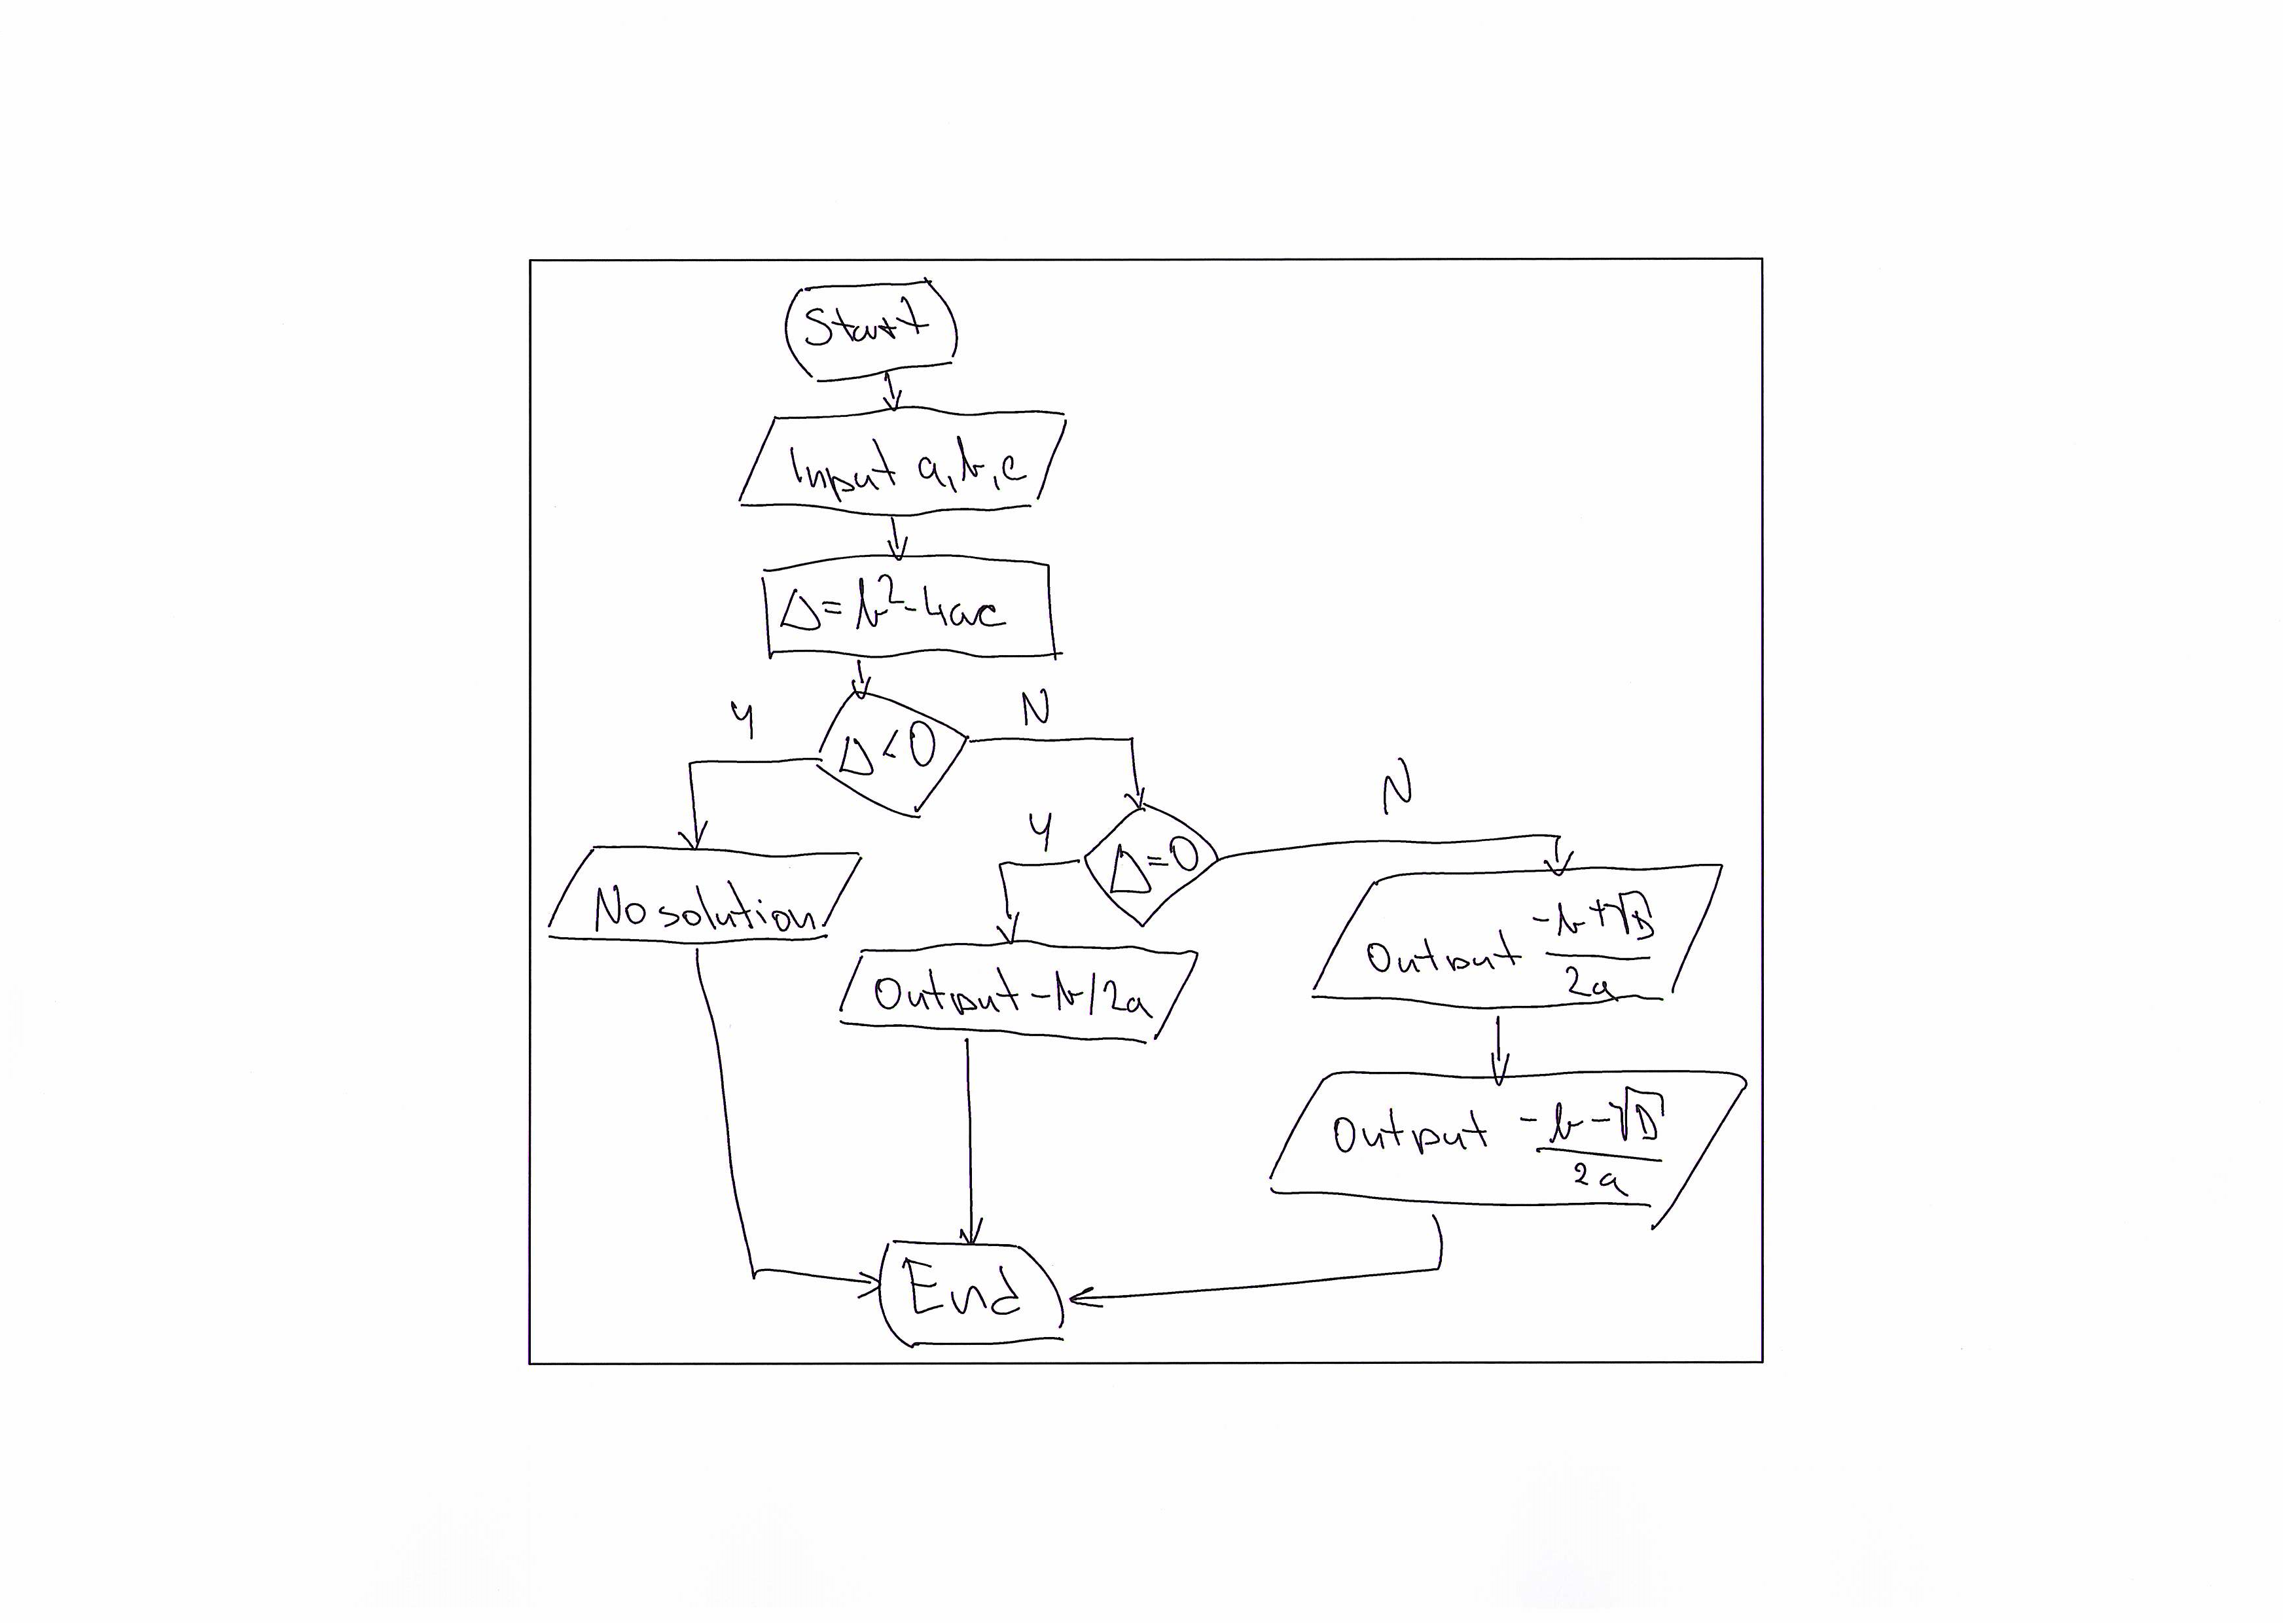 Start
Input a, b, c
Δ = b² - 4ac
Δ < 0
Y
N
No solution
Δ = 0
Y
N
Output -b/2a
Output (-b + √Δ) / 2a
Output (-b - √Δ) / 2a
End